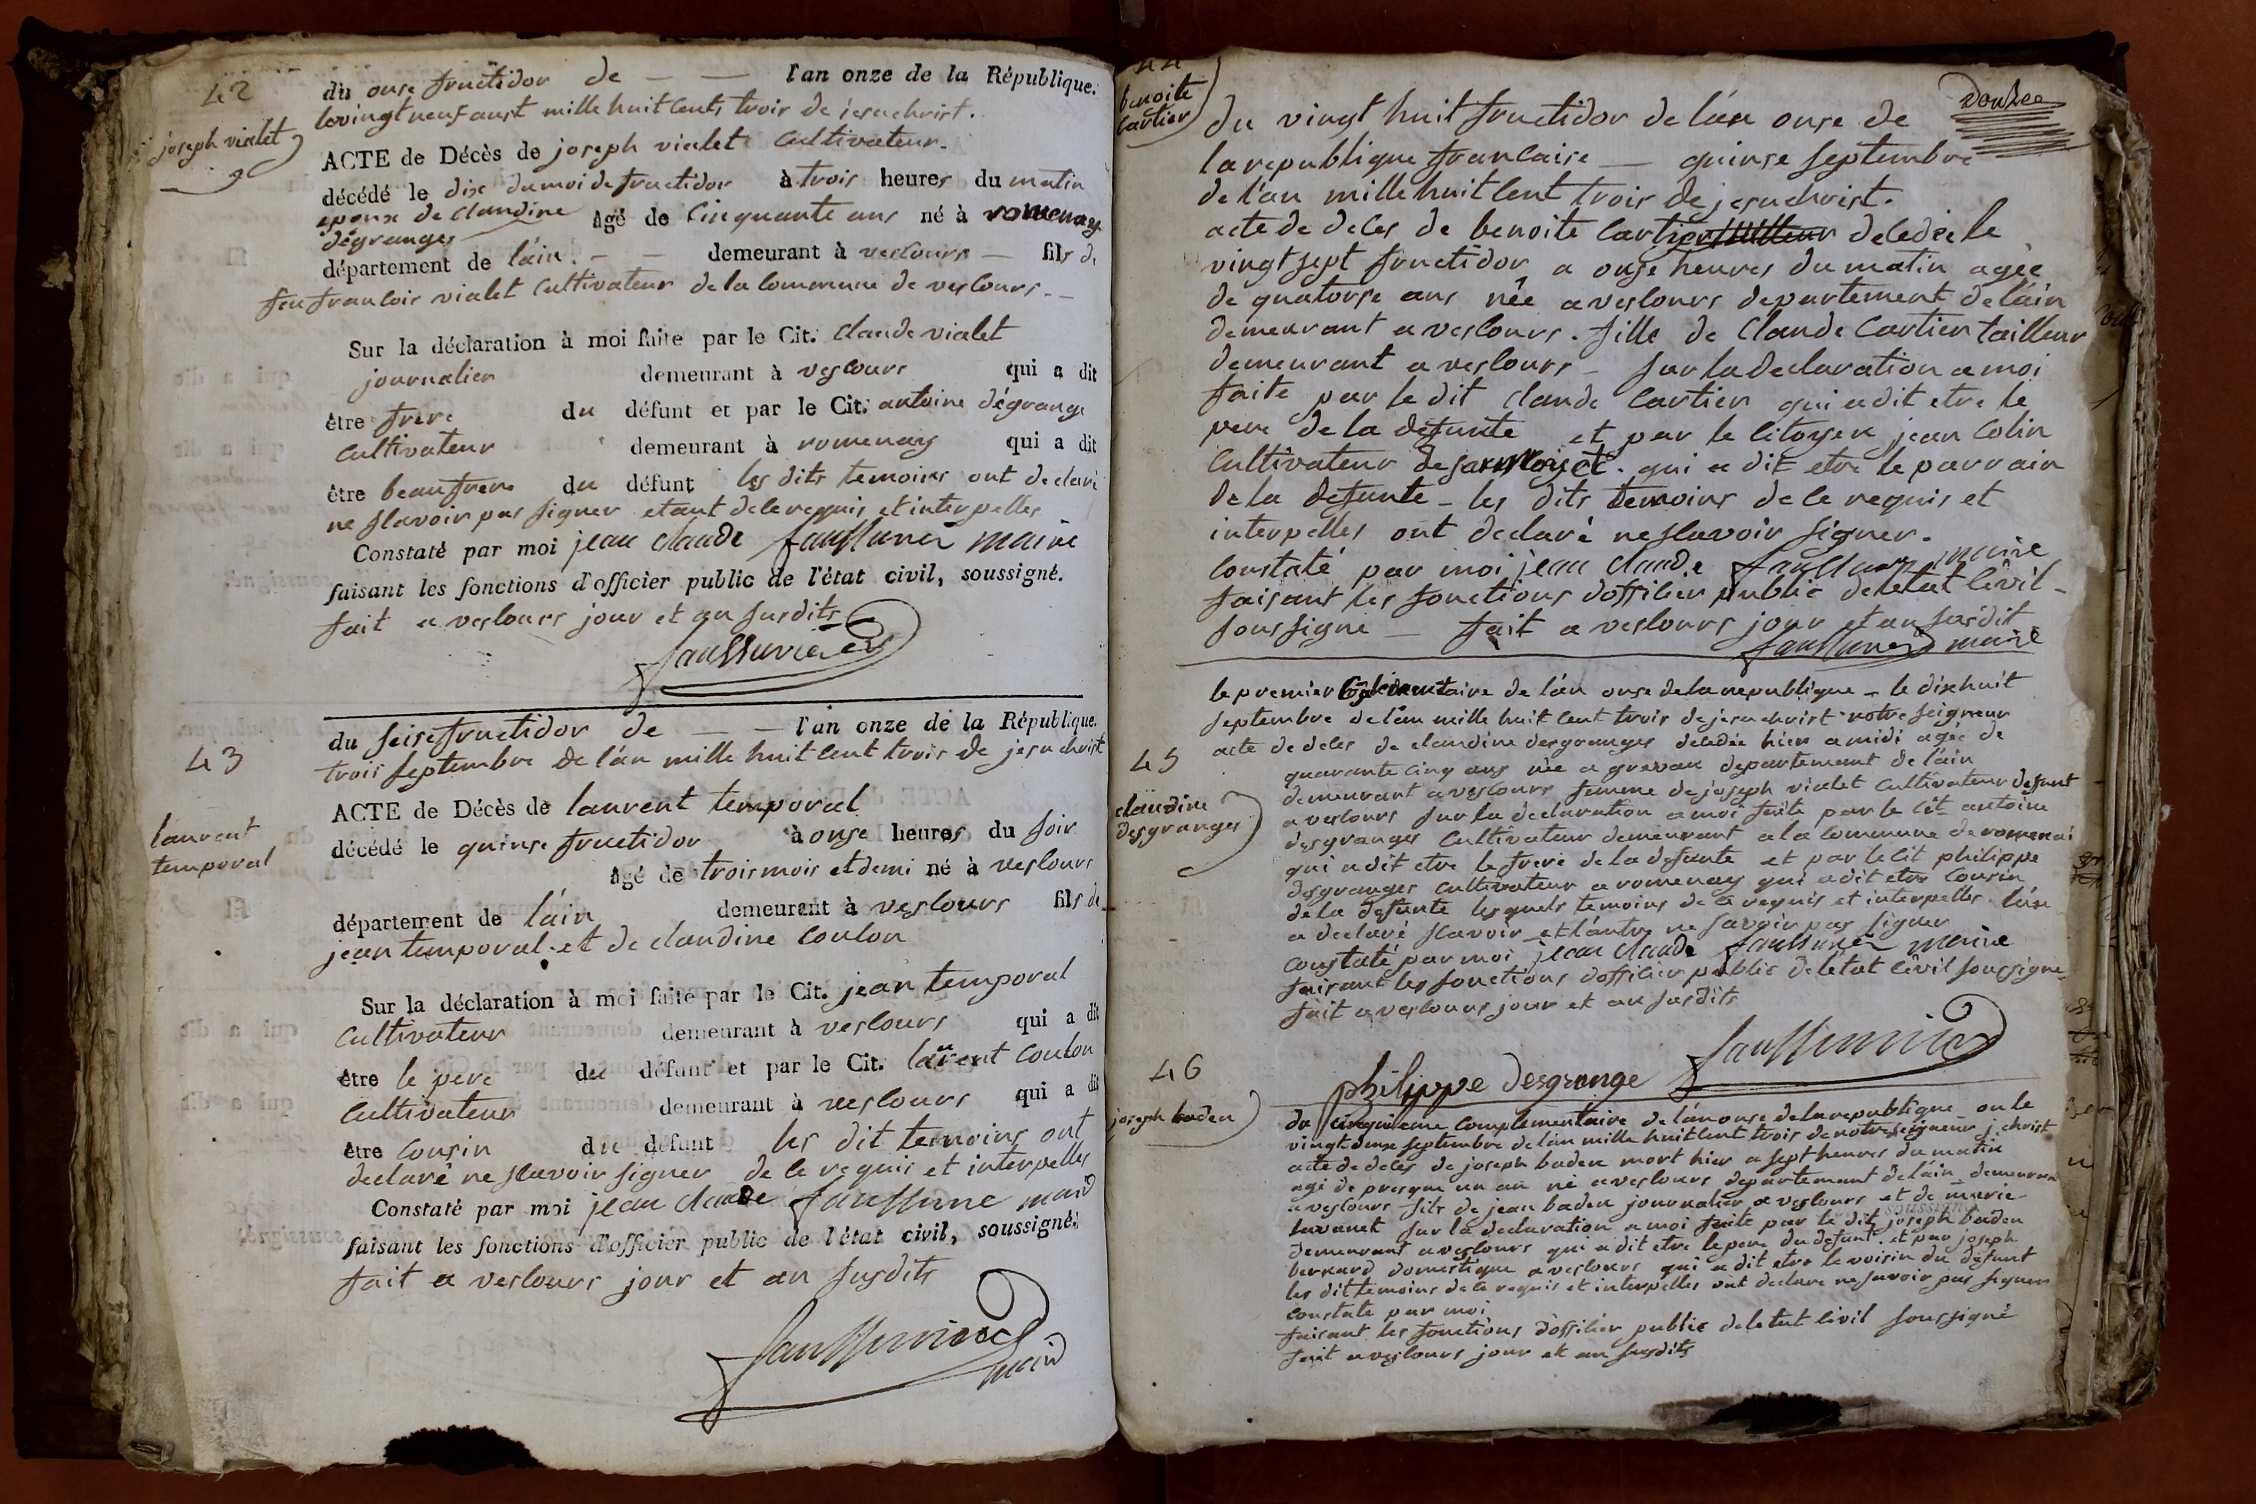 42
joseph vialet
du onse fructidor de — — l'an onze de la République.
le vingt neuf aust mille huit cents trois de jesuchrist.
ACTE de Décès de joseph vialet cultivateur.
décédé le dix du moi de fructidor à trois heures du matin
epoux de claudine
dégranges
âgé de cinquante ans né à romenay
département de l'áin. — — demeurant à vescours — fils de
feu francois vialet cultivateur de la commune de vescours. —
Sur la déclaration à moi faite par le Cit. claude vialet
journalier demeurant à vescours qui a dit
être frere du défunt et par le Cit. antoine dégrange
cultivateur demeurant à romenay qui a dit
être beaufrere du défunt les dits temoins ont declaré
ne scavoir pas signer etant de ce requis et interpelles
Constaté par moi jean claude maire
faisant les fonctions d'officier public de l'état civil, soussigné.
fait a vescours jour et an susdits
43
laurent
temporal
du seise fructidor de — — l'an onze de la République.
trois septembre de l'án mille huit cent trois de jesuchrist
ACTE de Décès de laurent temporal
décédé le quinse fructidor à onse heures du soir
âgé de trois mois et demi né à vescours
département de l'áin demeurant à vescours fils de
jean temporal et de claudine coulon
Sur la déclaration à moi faite par le Cit. jean temporal
cultivateur demeurant à vescours qui a dit
être le pere du défunt et par le Cit. laurent coulon
cultivateur demeurant à vescours qui a dit
être cousin du défunt les dit temoins ont
declaré ne scavoir signer de ce requis et interpelles
Constaté par moi jean claude maire
faisant les fonctions d'officier public de l'état civil, soussigné.
fait a vescours jour et an susdits
maire
44
benoite
cartier
Douze
du vingt huit fructidor de l'án onse de
la republique francaise — quinse septembre
de l'án mille huit cent trois de jesuchrist.
acte de deces de benoite cartier decedée le
vingt sept fructidor a onse heures du matin agée
de quatorse ans née a vescours departement de l'áin
demeurant a vescours. fille de claude cartier tailleur
demeurant a vescours — sur la declaration a moi
faite par le dit claude cartier qui a dit etre le
pere de la defunte et par le citoyen jean colin
cultivateur de qui a dit etre le parrain
de la defunte — les dits temoins de ce requis et
interpelles ont declaré ne scavoir signer.
constaté par moi jean claude maire
faisant les fonctions d'officier public de letat civil —
soussigné — fait a vescours jour et an susdit
maire
45
claudine
desgranges
le premier complementaire de l'án onse de la republique — le dixhuit
septembre de l'án mille huit cent trois de jesuchrist notre seigneur
acte de deces de claudine desgranges decedée hier a midi agée de
quarante cinq ans née a departement de l'áin
demeurant a vescours femme de joseph vialet cultivateur defunt
a vescours sur la declaration a moi faite par le cit antoine
desgranges cultivateur demeurant a la commune de romenai
qui a dit etre le frere de la defunte et par le cit philippe
desgranges cultivateur a romenay qui a dit etre cousin
de la defunte lesquels temoins de ce requis et interpelles l'ún
a declaré scavoir et l'autre ne savoir pas signer
constaté par moi jean claude maire
faisant les fonctions dofficier public de létat civil soussigné
fait a vescours jour et an susdits
philippe desgrange
46
joseph baden
du cinquieme complementaire de l'án onse de la republique — ou le
vingt deux septembre de lan mille huit cent trois de notre seigneur j christ
acte de deces de joseph baden mort hier a sept heures du matin
agé de presque un an né a vescours departement de l'áin demeurant
a vescours fils de jean baden journalier a vescours et de marie
sur la declaration a moi faite par le dit joseph baden
demeurant a vescours qui a dit etre le pere du defunt et par joseph
bernard domestique a vescours qui a dit etre le voisin du defunt
les dit temoins de ce requis et interpelles ont declare ne savoir pas signer
constaté par moi
faisant les fonctions dofficier public de letat civil soussigné
fait a vescours jour et an susdits